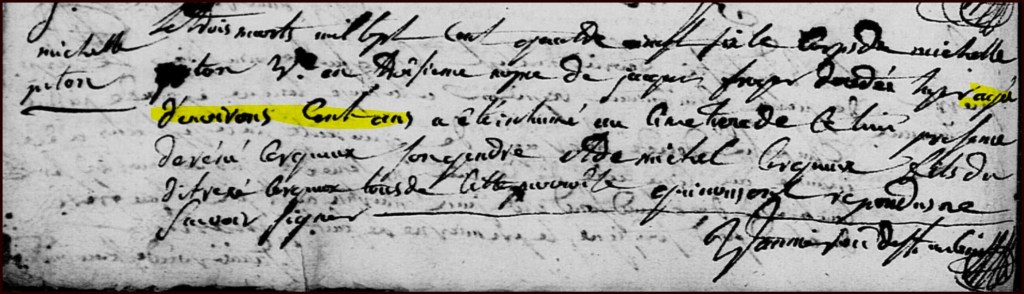 michelle
piton
Le trois marts mil sept cent quatre vingt six le corps de michelle
piton Ve en troisieme nopce de jacques froger decedée hyer agée
d'environs Cent ans a été inhumé au Cimetiere de Ce lieu présence
de réné Cerqueux son gendre et de michel Cerqueux fils du
dit réné Cerqueux tous de Cette paroisse qui nous ont repondus ne
Savoir signer